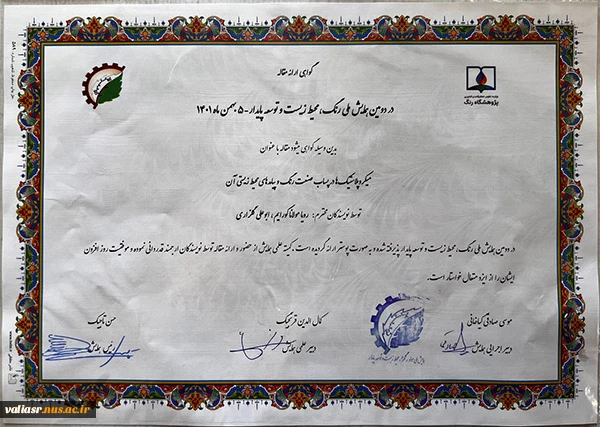 گواهی ارائه مقاله
پژوهشگاه رنگ
در دومین همایش ملی رنگ، محیط زیست و توسعه پایدار - ۵ بهمن ماه ۱۴۰۱
بدین وسیله گواهی میشود مقاله با عنوان
میکروپلاستیک‌ها در پساب صنعت رنگ و پیامدهای محیط زیستی آن
توسط نویسندگان محترم: رویا مولانا کورایم، ابوعلی گلزاری
در دومین همایش ملی رنگ، محیط زیست و توسعه پایدار پذیرفته شده و به صورت پوستر ارائه گردیده است. کمیته علمی همایش از حضور و ارائه مقاله توسط نویسندگان ارجمند قدردانی نموده و موفقیت روز افزون
ایشان را از ایزد متعال خواستار است.
موسی صادقی کیاخانی
دبیر اجرایی همایش
کمال الدین قرنجیگ
دبیر علمی همایش
حسن تاجیک
رئیس همایش
valiasr.nus.ac.ir